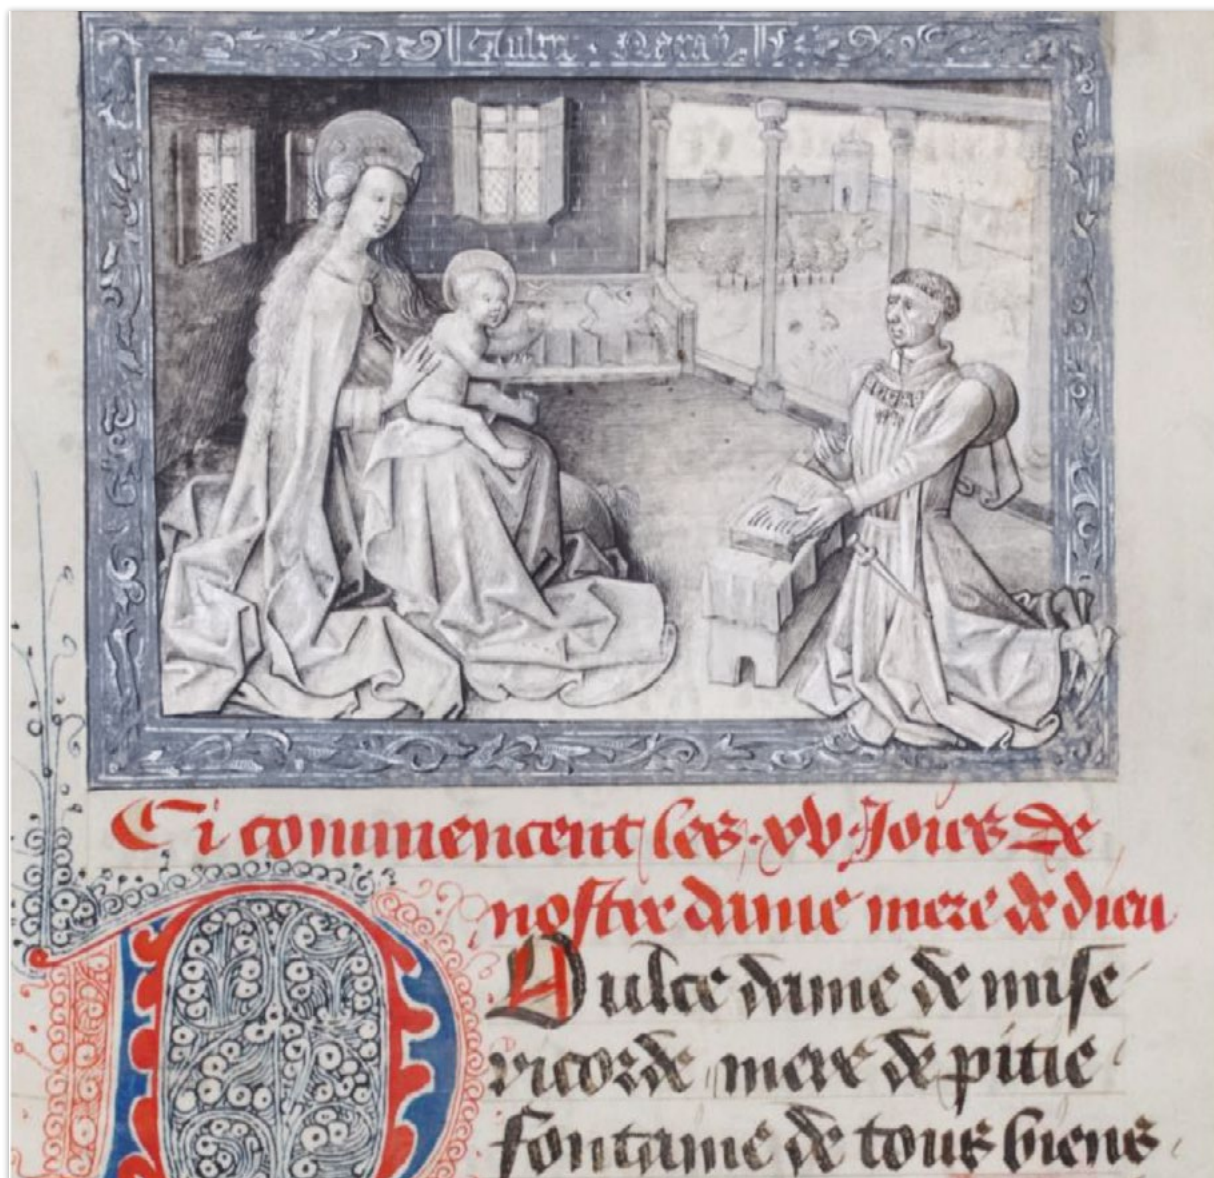 Ci commencent les .xv. Joies de
nostre dame mere de dieu
Dulce dame de mise
ricorde mere de pitie
fontaine de tous biens